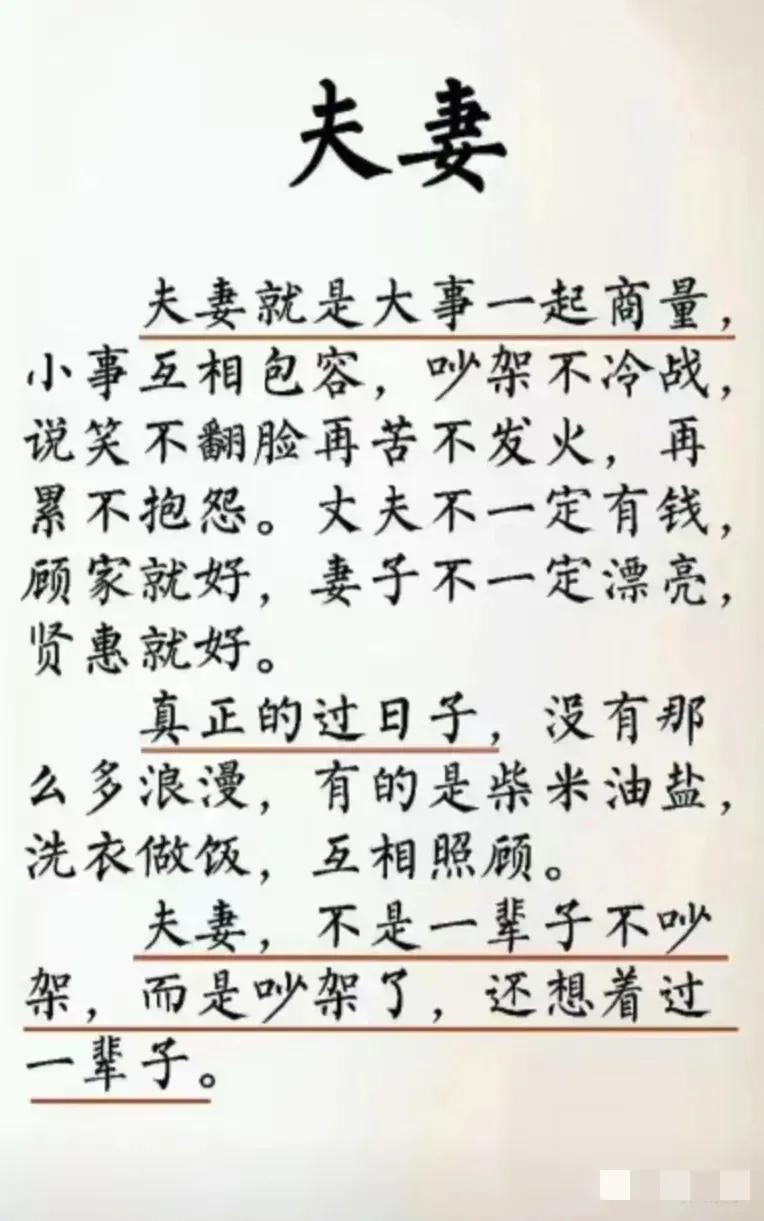 夫妻
夫妻就是大事一起商量，
小事互相包容，吵架不冷战，
说笑不翻脸再苦不发火，再
累不抱怨。丈夫不一定有钱，
顾家就好，妻子不一定漂亮，
贤惠就好。
真正的过日子，没有那
么多浪漫，有的是柴米油盐，
洗衣做饭，互相照顾。
夫妻，不是一辈子不吵
架，而是吵架了，还想着过
一辈子。